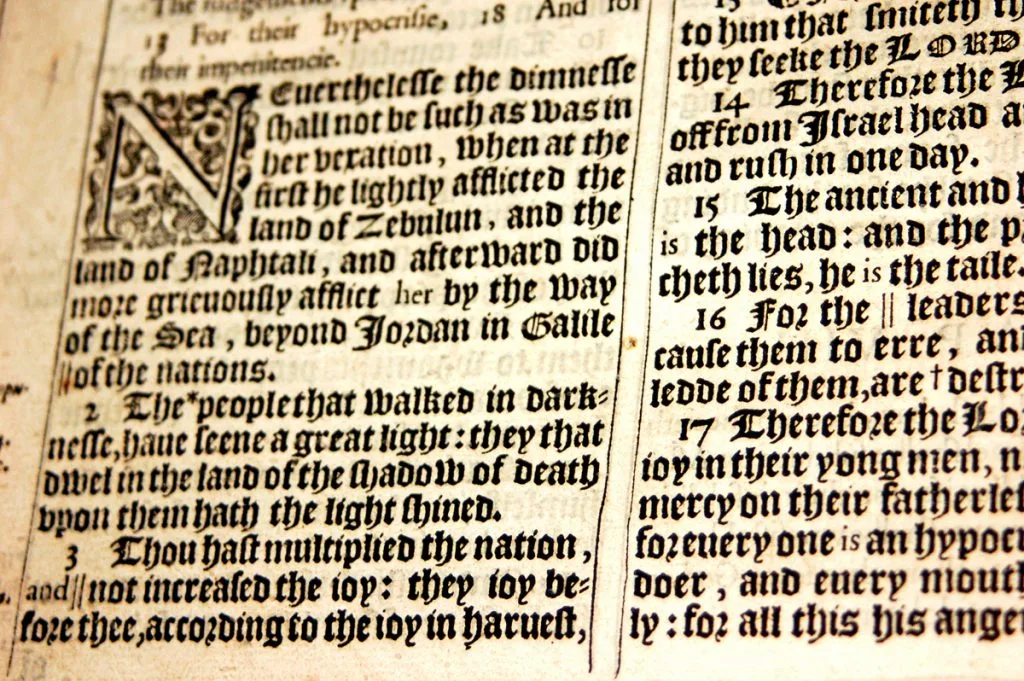 13 For their hypocrisie, 18 And for
their impenitencie.
NEuerthelesse the dimnesse
shall not be such as was in
her vexation, when at the
first he lightly afflicted the
land of Zebulun, and the
land of Naphtali, and afterward did
more grieuously afflict her by the way
of the Sea, beyond Jordan in Galile
||of the nations.
2 The*people that walked in dark-
nesse, haue seene a great light: they that
dwel in the land of the shadow of death
vpon them hath the light shined.
3 Thou hast multiplied the nation,
and||not increased the ioy: they ioy be-
fore thee, according to the ioy in haruest,
to him that smiteth
they seeke the LORD
14 Therefore the
off from Israel head
and rush in one day.
15 The ancient and
is the head: and the
cheth lies, he is the taile.
16 For the || leaders
cause them to erre,
ledde of them, are †
17 Therefore the
ioy in their yong men,
mercy on their
for euery one is an
doer, and euery
ly: for all this his